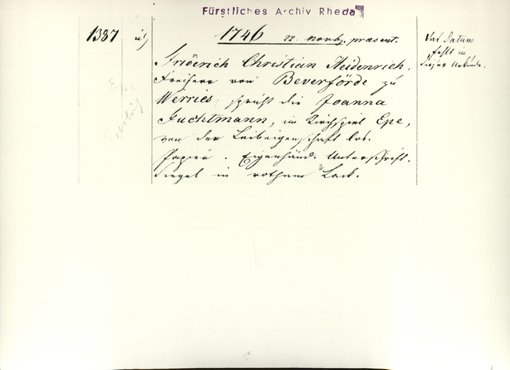 Fürstliches Archiv Rheda
1387
1746 22. novbr. praesent.
Das Datum
fehlt in
dieser Urkunde.
Friderich Christian Heidenrich,
Freiherr von Beverförde zu
Werries, spricht die Joanna
Huchtmann, im Kirchspiel Epe,
von der Leibeigenschaft los.
Papier. Eigenhänd. Unterschrift.
Siegel in rothem Lack.
Epe